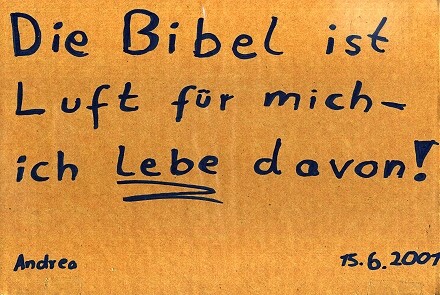 Die Bibel ist
Luft für mich-
ich Lebe davon!
Andrea 15.6.2001